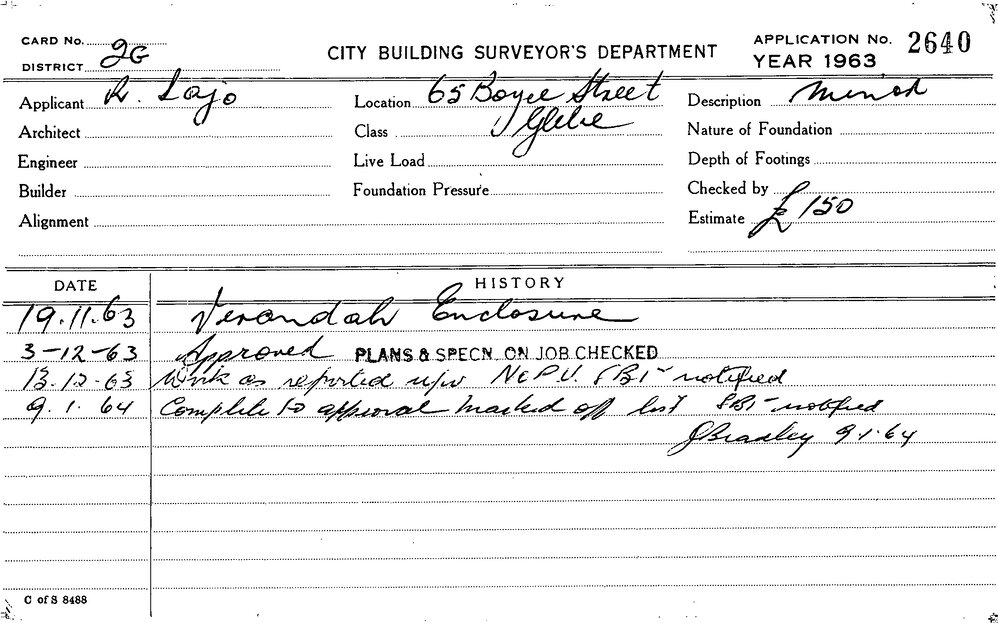 CARD No.
DISTRICT 2G
CITY BUILDING SURVEYOR'S DEPARTMENT
APPLICATION No. 2640
YEAR 1963
Applicant R. Lojo
Location 65 Boyce Street
Description Minor
Architect
Class Glebe
Nature of Foundation
Engineer
Live Load
Depth of Footings
Builder
Foundation Pressure
Checked by
Alignment
Estimate £150
DATE HISTORY
19.11.63 Verandah Enclosure
3-12-63 Approved PLANS & SPECN. ON JOB CHECKED
13.12.63 Work as reported u/w notified
9.1.64 Complete to approval marked off list notified
JBradley 9.1.64
C of S 8488